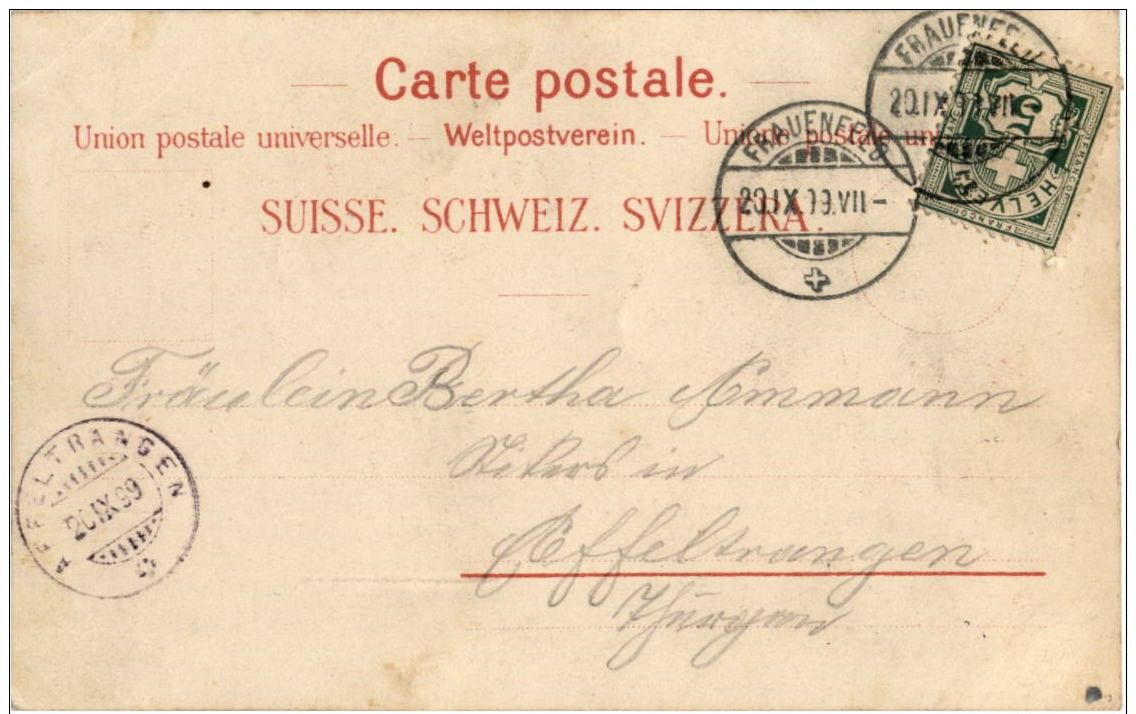 Carte postale.
Union postale universelle. — Weltpostverein. — Unione postale uni
SUISSE. SCHWEIZ. SVIZZERA.
FRAUENFELD
20.IX.99.VII-
FRAUENFELD
20.IX.99.VII-
5
HELVETIA
FRANCO
FRANCO
Fräulein Bertha Ammann
in
Affeltrangen
Thurgau
AFFELTRANGEN
20.IX.99